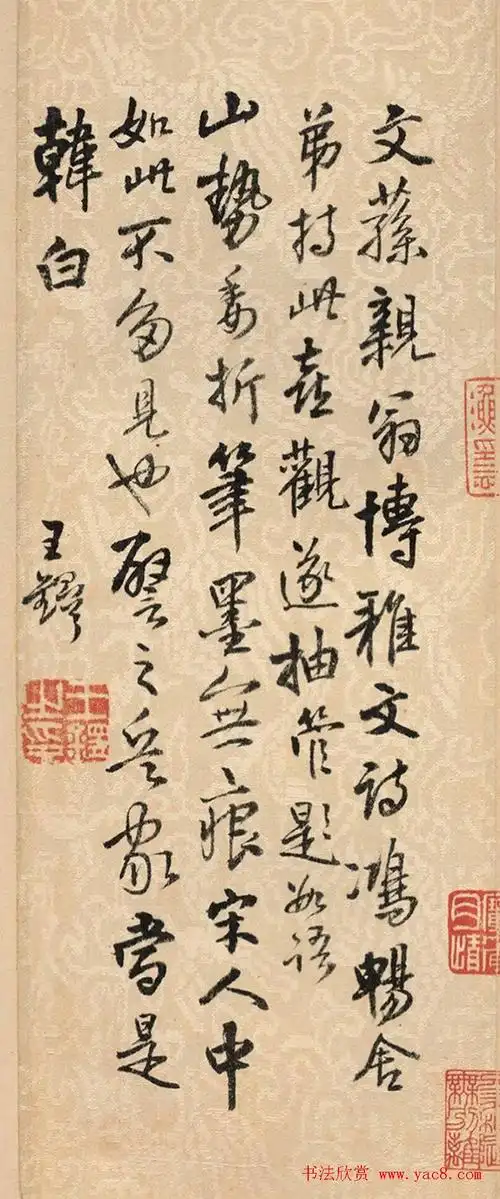 文蓀親翁博雅文詩鴻暢舍
弟持此垚觀遂抽管題數語
山勢委折筆墨無痕宋人中
如此不多見也譬之兵家當是
韓白
王鐸
王鐸之印
书法欣赏 www.yac8.com